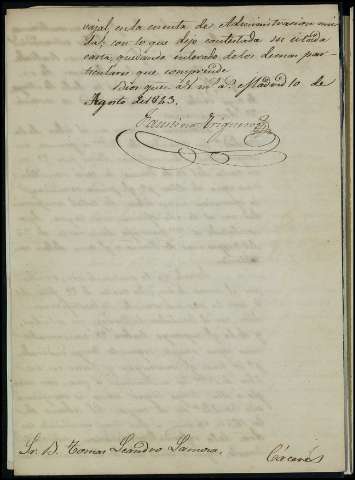 vajal, en la cuenta de Administracion mis
tal; con lo que dejo contestada su citada
carta, quedando enterado de los demas par-
ticulares que comprende.
Dios gue. á V. ms. as. Madrid 10 de
Agosto de 1843.
Faustino
Sr. D. Tomas Leandro Lamora.
Cáceres